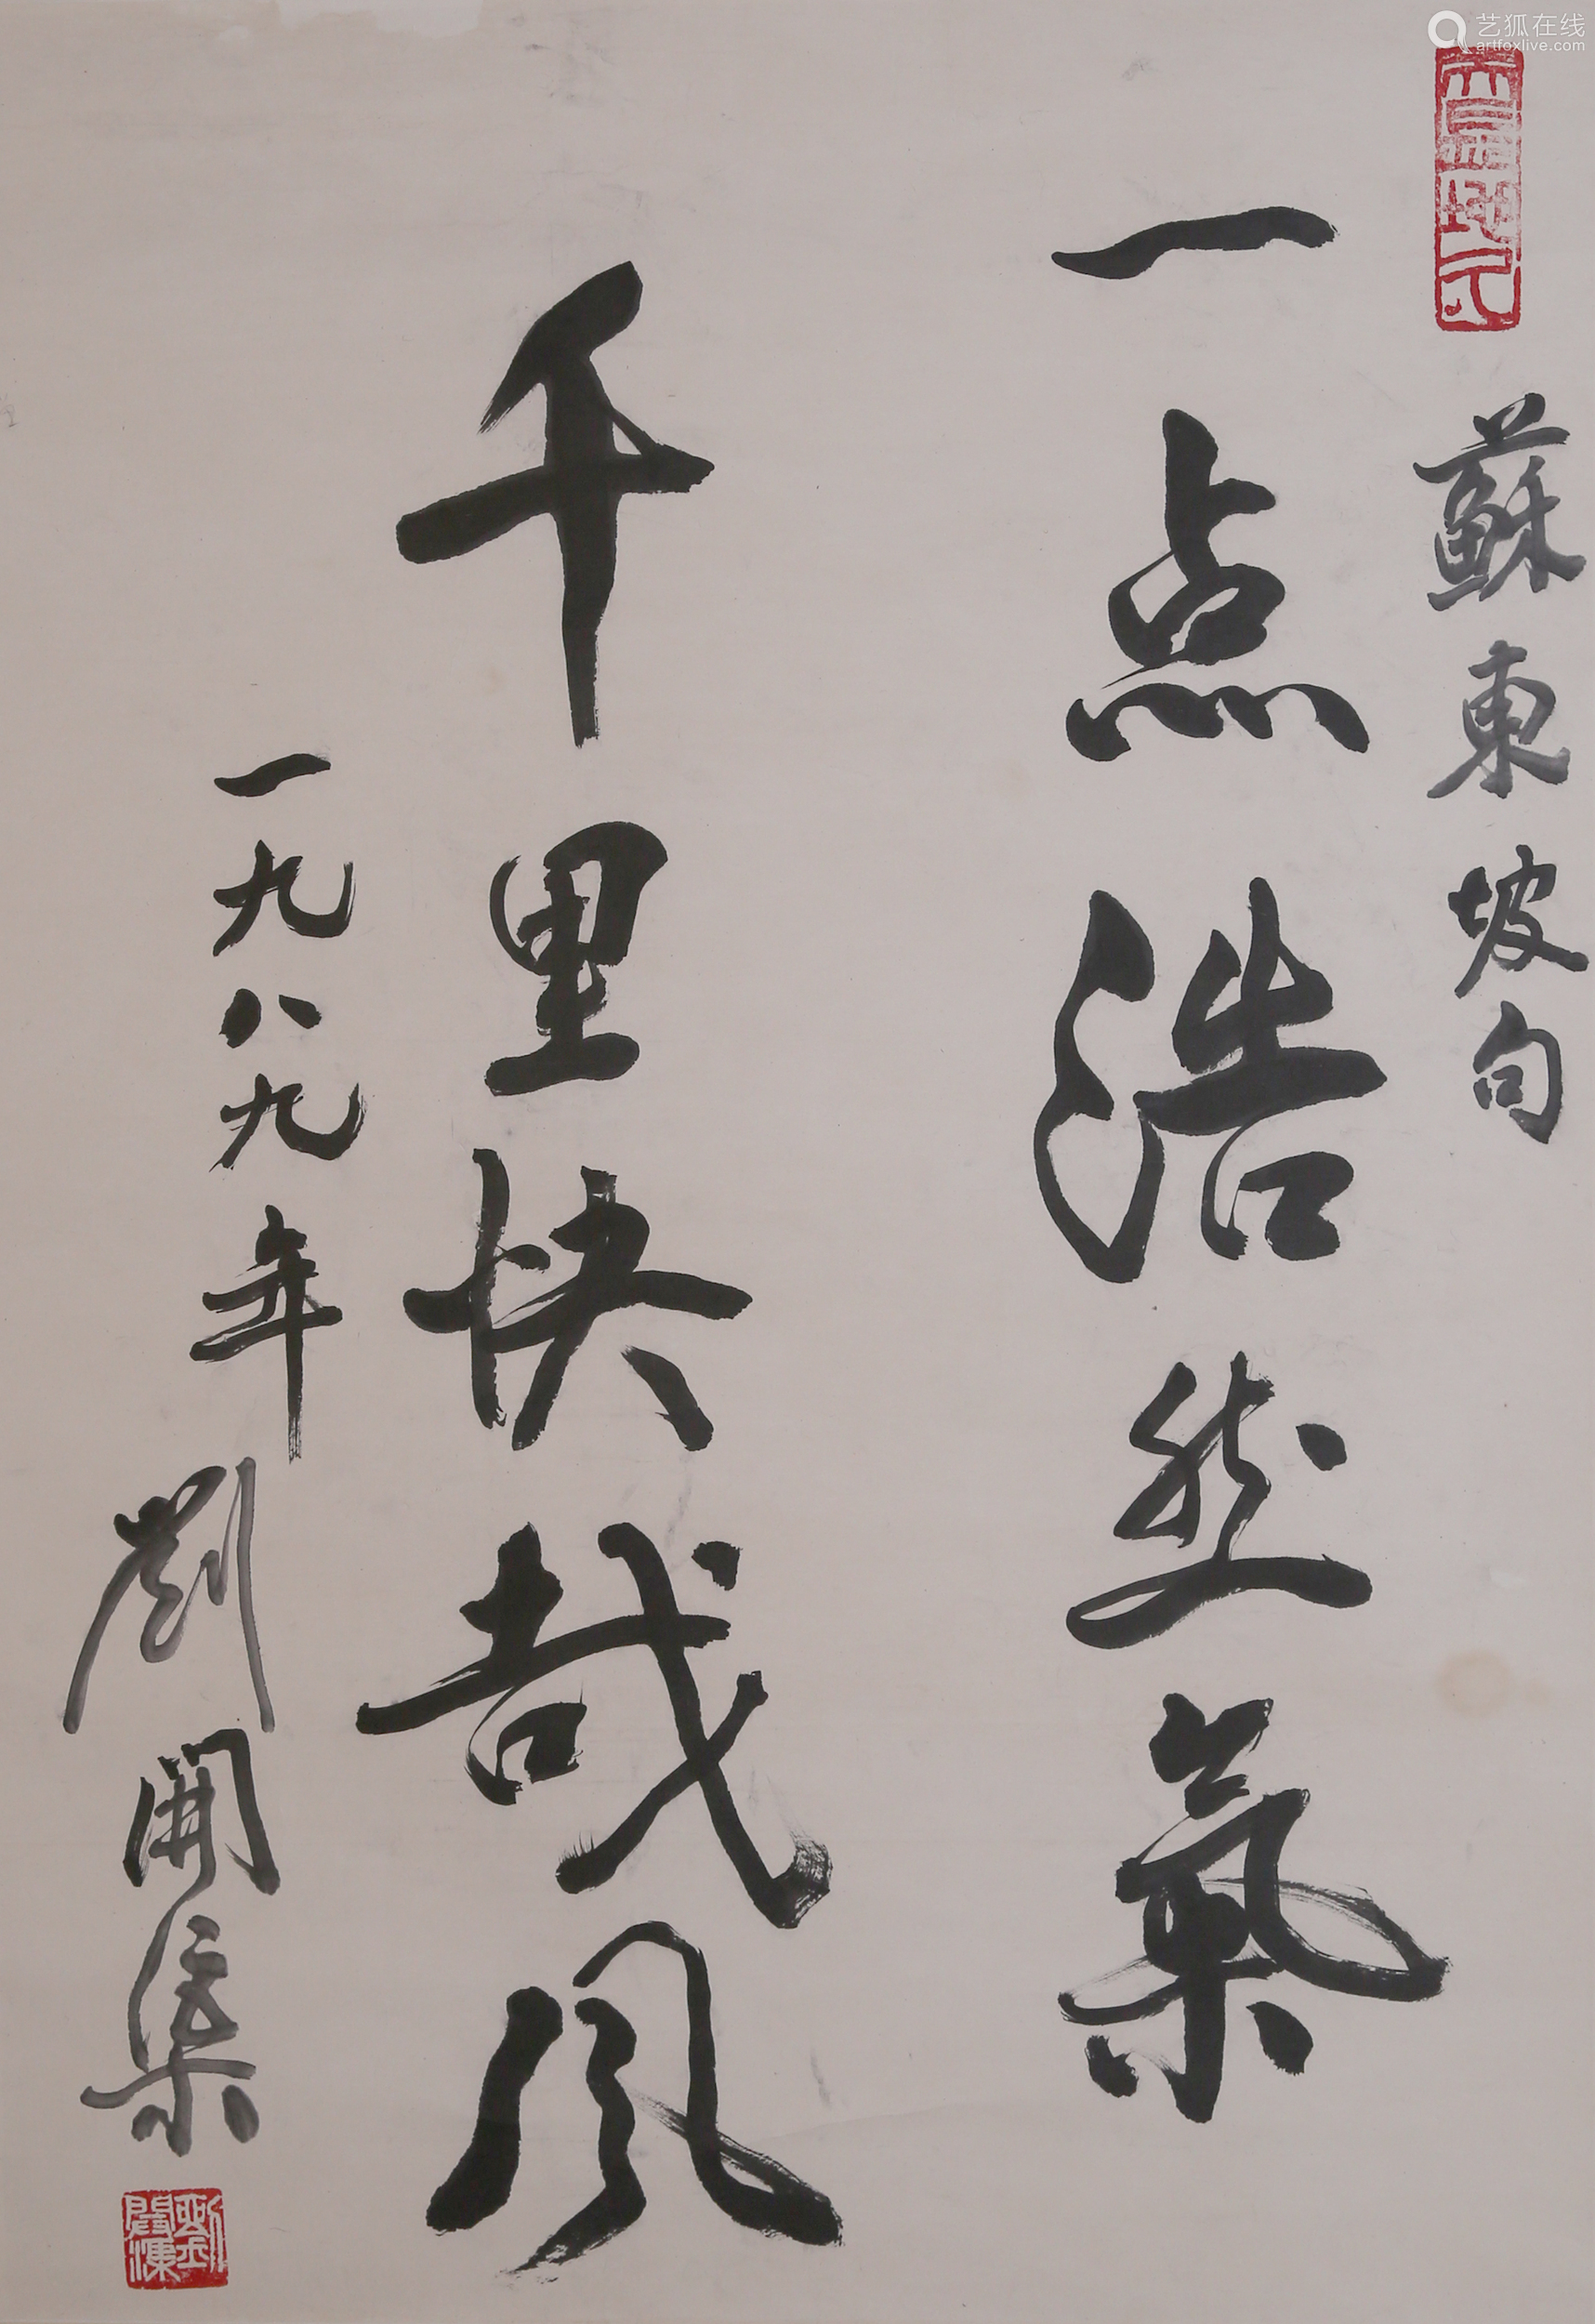 蘇東坡句
一点浩然氣
千里快哉風
一九八九年
劉開渠
艺狐在线
artfoxlive.com